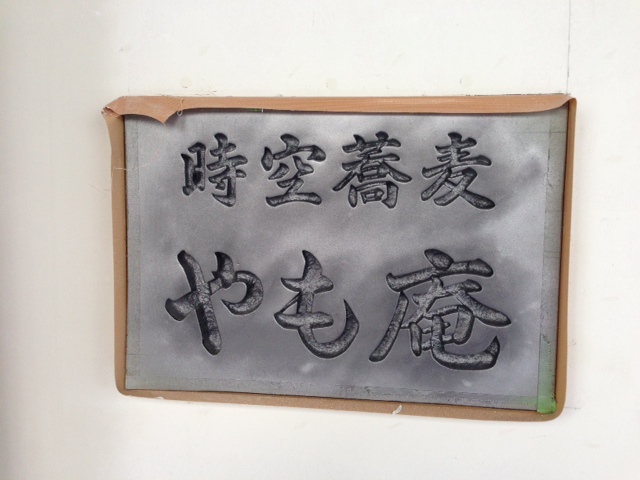 時空蕎麦
やも庵